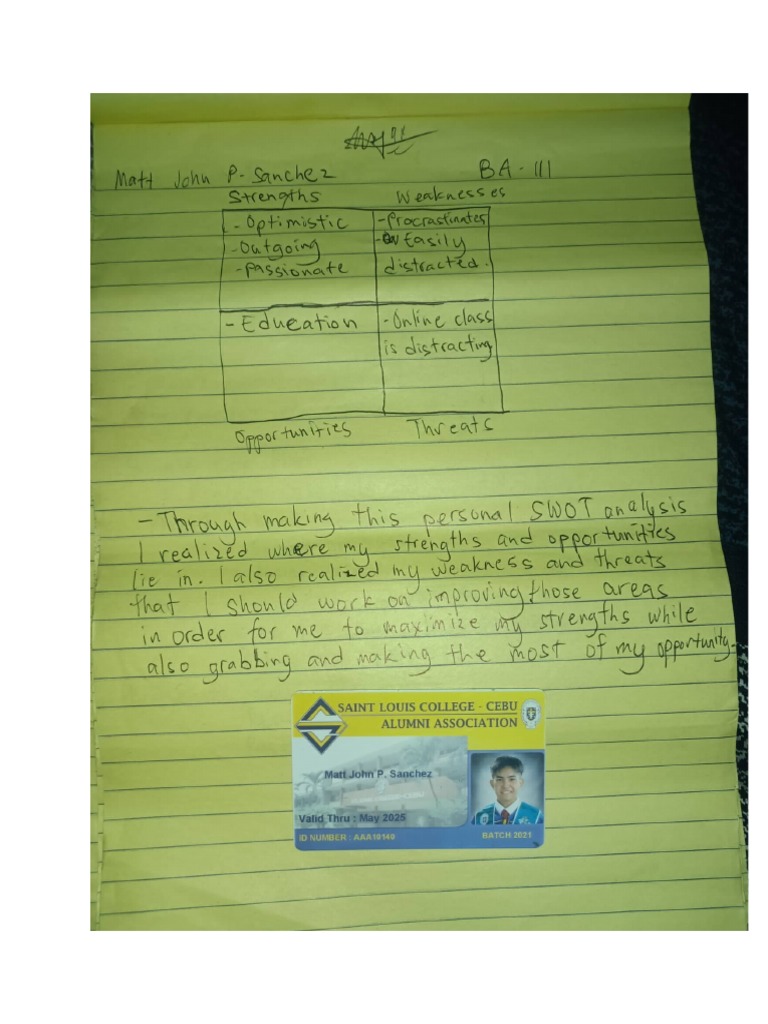 Matt John P. Sanchez BA - 111
Strengths Weaknesses
- Optimistic - Procrastinates
- Outgoing - Easily
- Passionate distracted.
- Education - Online class
is distracting
Opportunities Threats
- Through making this personal SWOT analysis
I realized where my strengths and opportunities
lie in. I also realized my weakness and threats
that I should work on improving those areas
in order for me to maximize my strengths while
also grabbing and making the most of my opportunity.
SAINT LOUIS COLLEGE - CEBU
ALUMNI ASSOCIATION
Matt John P. Sanchez
Valid Thru : May 2025
ID NUMBER : AAA10140 BATCH 2021